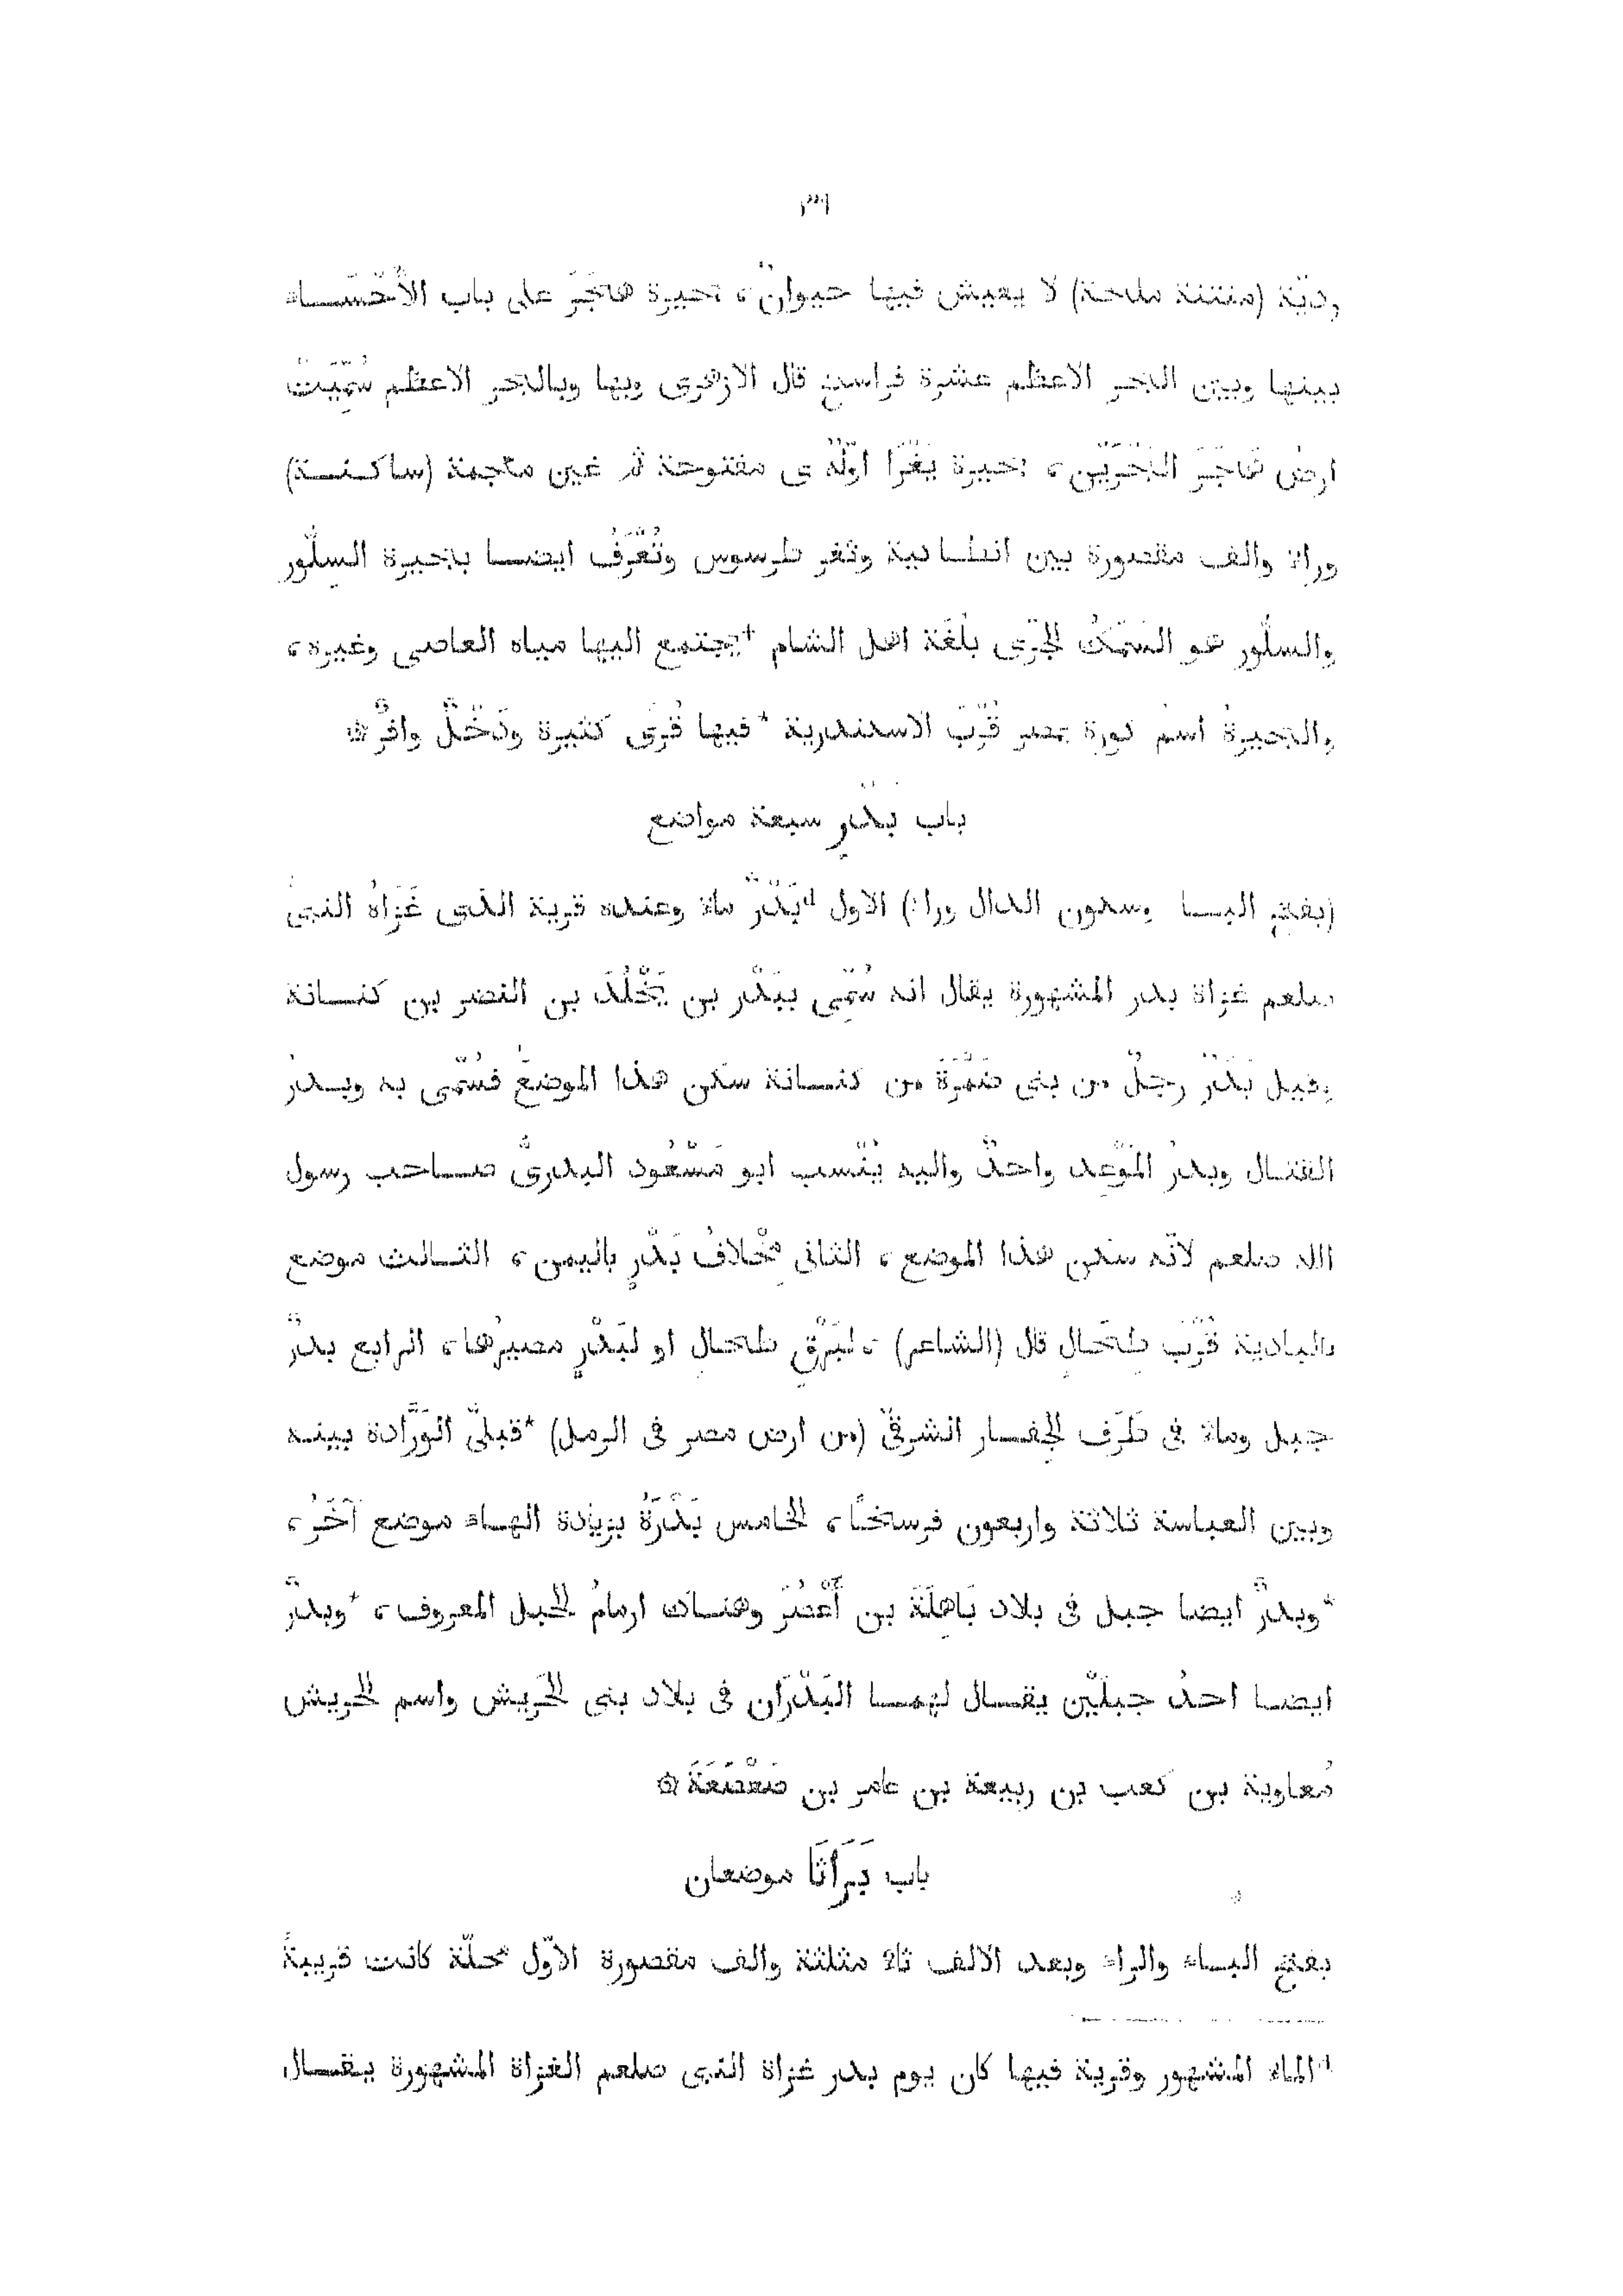 ٣٦
رديّة (منتنة ملحة) لا يعيش فيها حيوانٌ، بحيرة هَجَرَ على باب الأَحْسَـاء
بينها وبين البحر الاعظم عشرة فراسخ قال الازهرى وبها وبالبحر الاعظم سُمِّيَتْ
ارضُ هَجَرَ البَحْرَيْن، بحيرة يَغْرَا اوّلُه ى مفتوحة ثم غين معجمة (ساكنـة)
وراء والف مقصورة بين انطاكية وثغر طرسوس وتُعْرَفُ ايضا ببحيرة السِلَّور
والسلَّور هو السَمَكُ الجِرّى بلُغَة اهل الشام *يجتمع اليها مياه العاصى وغيره،
والبحيرةُ اسمُ كورة بمصر قُرْبَ الاسكندرية *فيها قُرًى كثيرة ودَخْلٌ وافرٌ ۞
باب بَدْرٍ سبعة مواضع
(بفتح البـا وسكون الدال وراء) الاول ⁴بَدْرٌ ماء وعنده قرية الذى غَزَاهُ النبىُّ
صلعم غزاة بدر المشهورة يقال انه سُمِّى ببَدْر بن يَخْلُدَ بن النضر بن كنـانة
وقيل بَدْرٌ رجلٌ من بنى ضَمْرَةَ من كنـانة سكن هذا الموضعَ فسُمّى به وبـدرُ
القتـال وبدرُ المَوْعِد واحدٌ واليه يُنْسب ابو مَسْعُود البدرىُّ صـاحب رسول
الله صلعم لانّه سكن هذا الموضع، الثانى مِخْلافُ بَدْرٍ باليمن، الثـالث موضع
بالبادية قُرْبَ طِحَالٍ قال (الشاعر)، لبَرْقِ طحالٍ او لبَدْرٍ مصيرُها، الرابع بدرٌ
جبل وماء فى طَرَف الجِفـار الشرقىّ (من ارض مصر فى الرمل) *قبلىَّ الوَرَّادة بينـه
وبين العباسة ثلاثة واربعون فرسخًا، الخامس بَدْرَةُ بزيادة الهـاء موضع آخَرُ،
*وبدرٌ ايضا جبل فى بلاد بَاهِلَةَ بن أَعْصُرَ وهنـاك ارمامُ الجبل المعروف، *وبدرٌ
ايضـا احدُ جبلَيْن يقـال لهمـا البَدْرَان فى بلاد بنى الحَرِيش واسم الحريش
مُعاوية بن كعب بن ربيعة بن عامر بن صَعْصَعَةَ ۞
باب بَرَاثَا موضعان
بفتح البـاء والراء وبعد الالف ثاء مثلثة والف مقصورة الاوّل محلّة كانت قريبةً
⁴الماء المشهور وقرية فيها كان يوم بدر غزاة النبى صلعم الغزاة المشهورة يـقـال